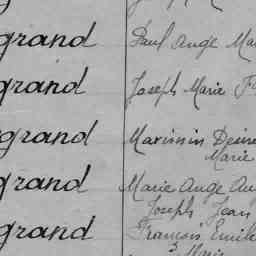 grand Paul Ange Ma
grand Joseph Marie F
grand
Marie
grand Marie Ange Au
Joseph Jean
grand François Emile
Marie